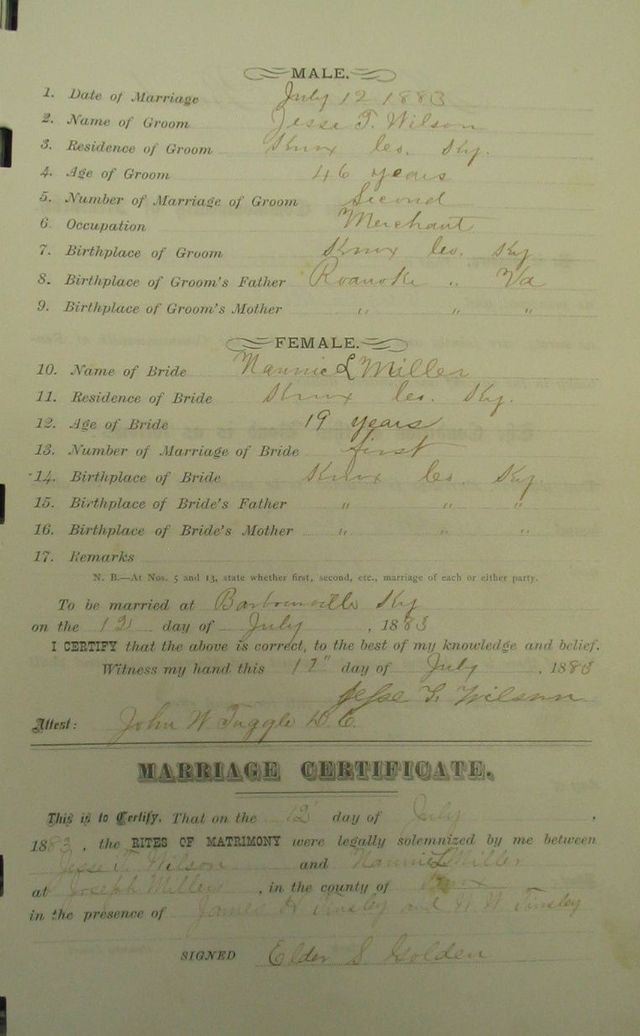 MALE.
1. Date of Marriage July 12 1883
2. Name of Groom Jesse T. Wilson
3. Residence of Groom Knox Co. Ky.
4. Age of Groom 46 years
5. Number of Marriage of Groom Second
6. Occupation Merchant
7. Birthplace of Groom Knox Co. Ky
8. Birthplace of Groom's Father Roanoke " Va
9. Birthplace of Groom's Mother " " "
FEMALE.
10. Name of Bride Nannie L Miller
11. Residence of Bride Knox Co. Ky.
12. Age of Bride 19 years
13. Number of Marriage of Bride first
14. Birthplace of Bride Knox Co. Ky
15. Birthplace of Bride's Father " " "
16. Birthplace of Bride's Mother " " "
17. Remarks
N. B.—At Nos. 5 and 13, state whether first, second, etc., marriage of each or either party.
To be married at Barbourville Ky
on the 12 day of July, 1883
I CERTIFY that the above is correct, to the best of my knowledge and belief.
Witness my hand this day of July, 1883
Jesse T. Wilson
Attest: John W Tuggle D. C.
MARRIAGE CERTIFICATE.
This is to Certify, That on the 12 day of July,
1883, the RITES OF MATRIMONY were legally solemnized by me between
Jesse T. Wilson and Nannie L Miller
at Joseph Millers, in the county of Knox
in the presence of James H Tinsley and W W Tinsley
SIGNED Elder S Golden